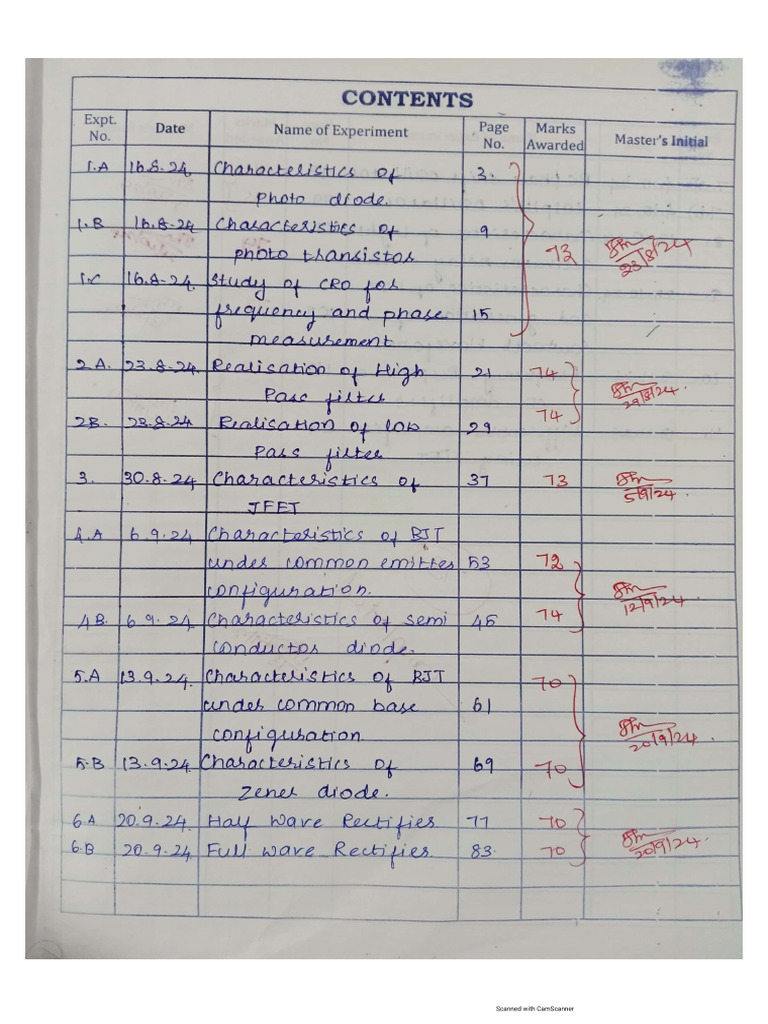 CONTENTS
Expt. No. Date Name of Experiment Page No. Marks Awarded Master's Initial
1.A 16.8.24 Characteristics of 3.
Photo diode.
1.B 16.8.24 Characteristics of 9
photo transistor 73 23/8/24
1.C 16.8.24. Study of CRO for
frequency and phase 15
measurement
2.A. 23.8.24. Realisation of High 21 74
Pass filter 29/8/24.
2B. 23.8.24 Realisation of low 29 74
Pass filter
3. 30.8.24 Characteristics of 37 73
JFET 5/9/24.
4.A 6.9.24 Characteristics of BJT
under common emitter 53 72
configuration. 12/9/24.
4B. 6.9.24 Characteristics of semi 45 74
conductor diode.
5.A 13.9.24. Characteristics of BJT 70
under common base 61
configuration 20/9/24.
5.B 13.9.24 Characteristics of 69 70
Zener diode.
6.A 20.9.24. Half Wave Rectifier 77 70
6.B 20.9.24 Full wave Rectifier. 83. 70 20/9/24.
Scanned with CamScanner